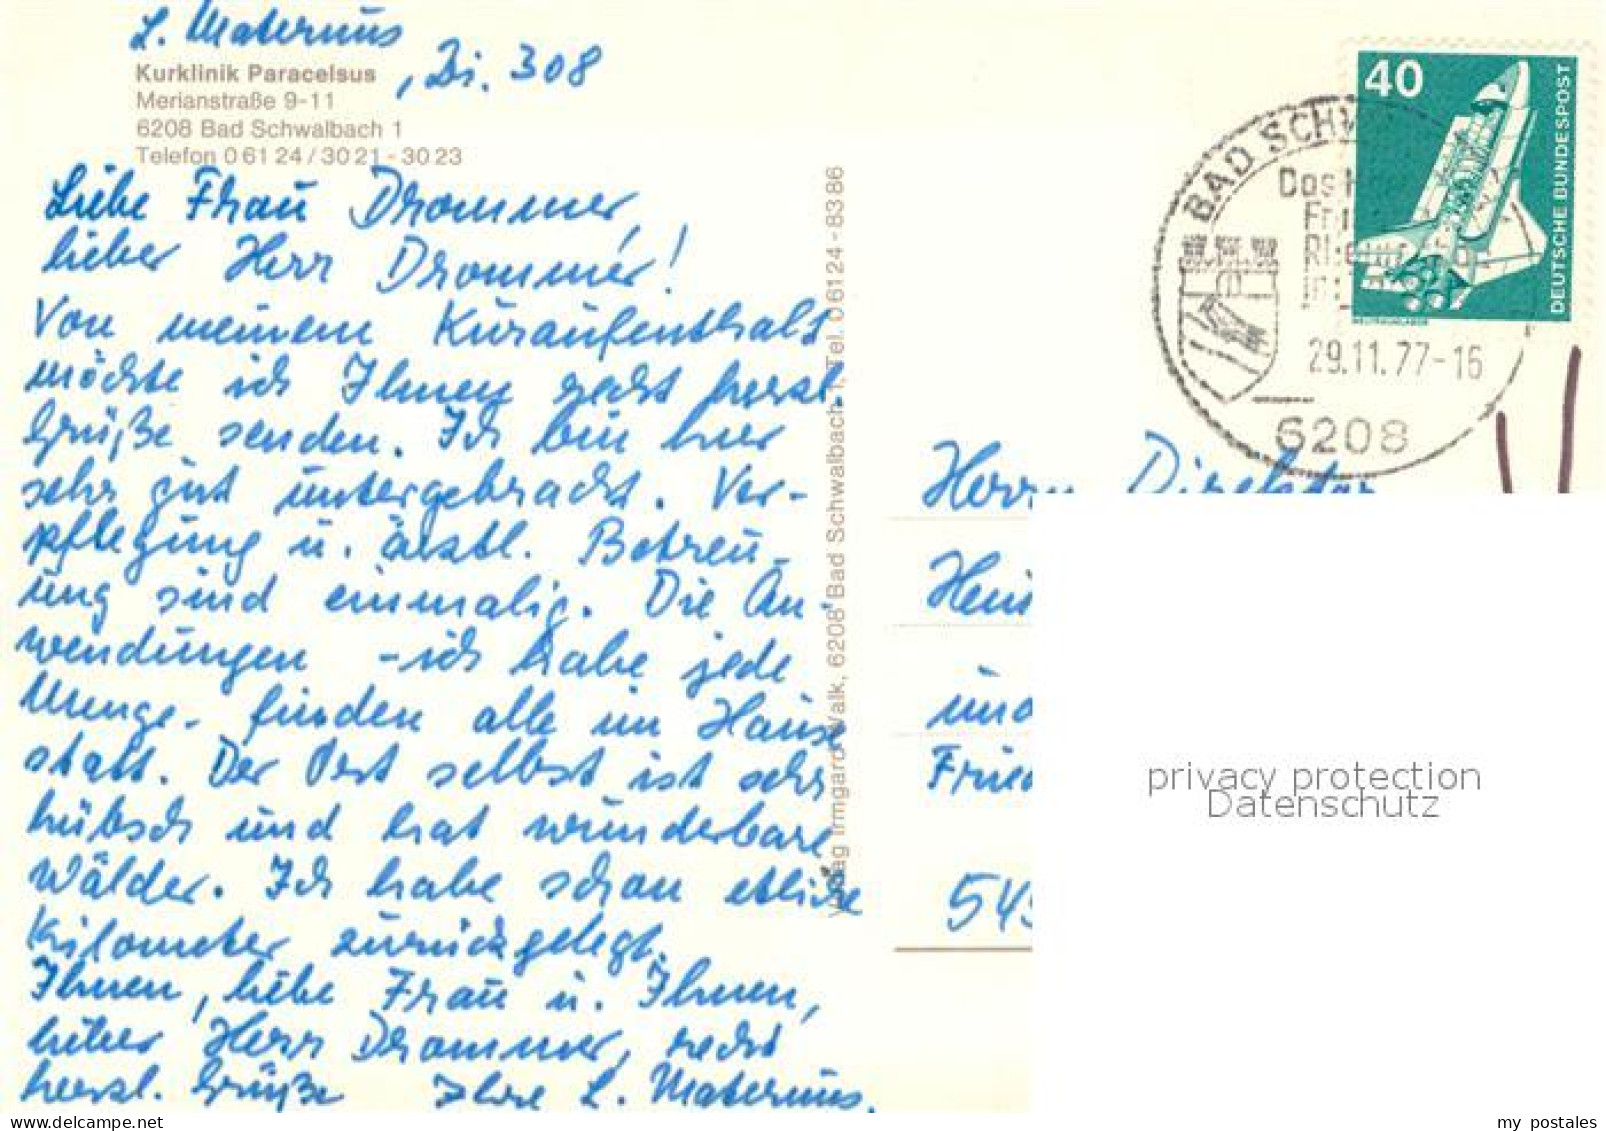 L. Maternus
, Zi. 308
Kurklinik Paracelsus
Merianstraße 9-11
6208 Bad Schwalbach 1
Telefon 0 61 24 / 30 21 - 30 23
Liebe Frau Drommer,
lieber Herr Drommer!
Von meinem Kuraufenthalt
möchte ich Ihnen recht herzl.
Grüße senden. Ich bin hier
sehr gut untergebracht. Ver-
pflegung u. ärztl. Betreu-
ung sind einmalig. Die An-
wendungen - ich habe jede
Menge - finden alle im Hause
statt. Der Ort selbst ist sehr
hübsch und hat wunderbare
Wälder. Ich habe schon etliche
Kilometer zurückgelegt.
Ihnen, liebe Frau u. Ihnen,
lieber Herr Drommer, recht
herzl. Grüße Ihre L. Maternus.
Verlag Irmgard Walk, 6208 Bad Schwalbach 1, Tel. 0 61 24 - 83 86
40
DEUTSCHE BUNDESPOST
BAD SCHW
29.11.77-16
6208
Herrn Direktor
und
545
privacy protection
Datenschutz
my postales